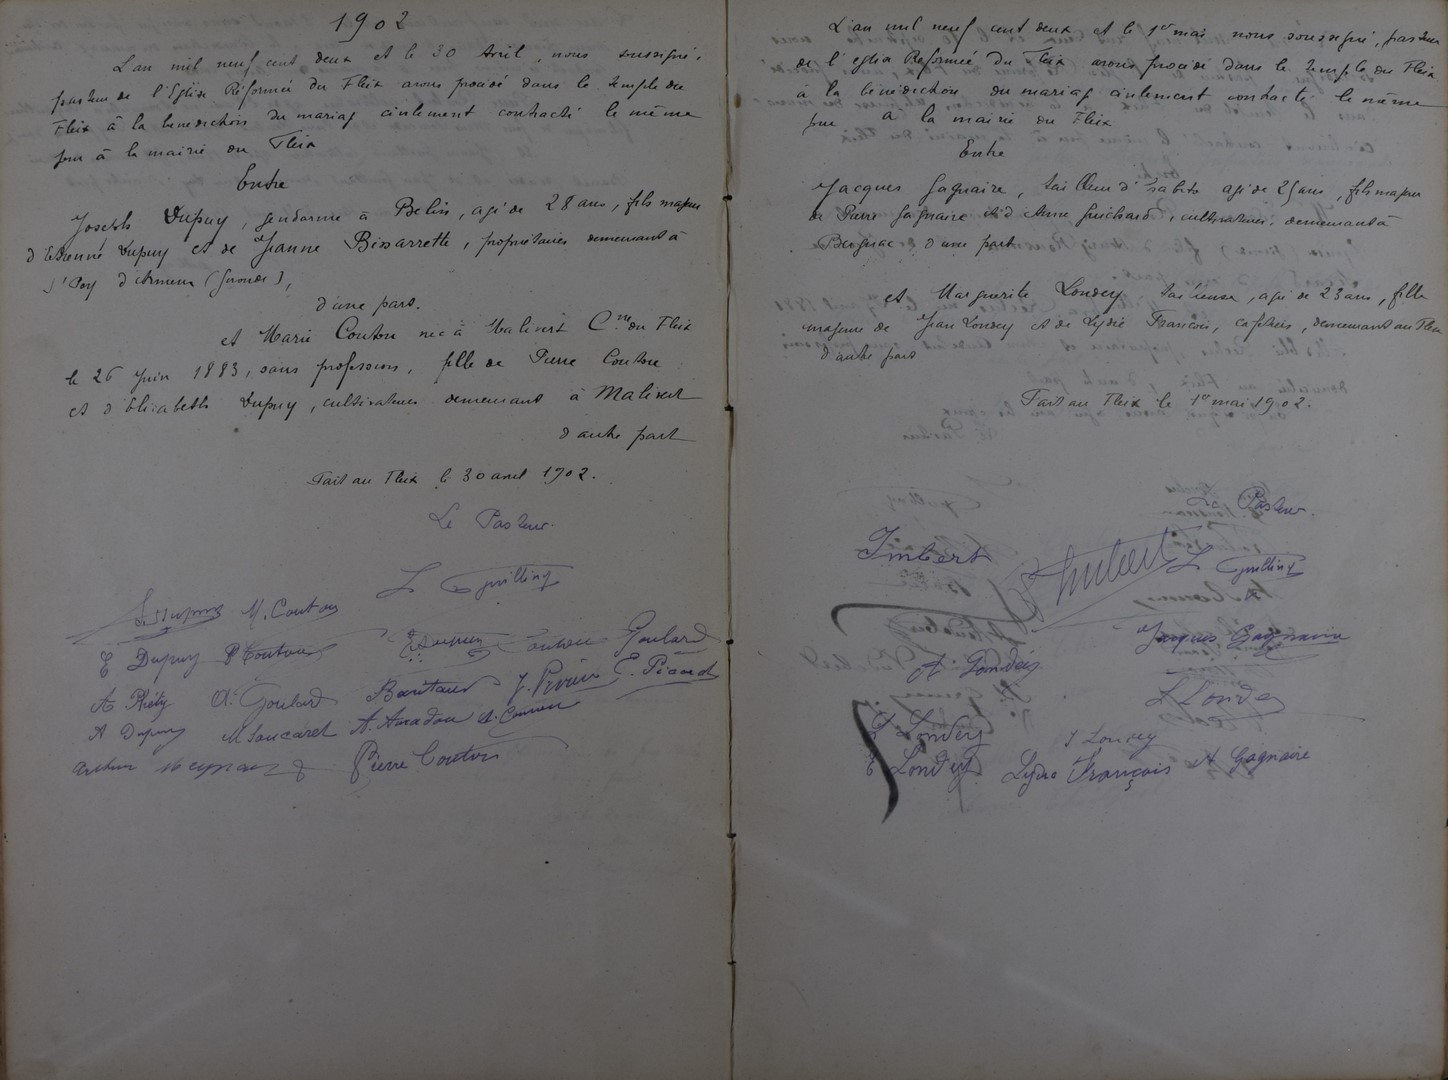 1902
L'an mil neuf cent deux et le 30 Avril, nous soussigné,
pasteur de l'Eglise Réformée du Fleix avons procédé dans le temple du
Fleix à la bénédiction du mariage civilement contracté le même
jour à la mairie du Fleix
Entre
Joseph Dupuy, gendarme à Belin, agé de 28 ans, fils majeur
d'Etienne Dupuy et de Jeanne Bissarrette, propriétaires demeurant à
(Gironde),
d'une part.
et Marie Couton née à Malivert Cne du Fleix
le 26 Juin 1883, sans profession, fille de Pierre Couton
et d'Elisabeth Dupuy, cultivateurs demeurant à Malivert
d'autre part
Fait au Fleix le 30 avril 1902.
Le Pasteur.
M. Couton
E Dupuy P Couton Goulard
A. Goulard E. Picard
A Dupuy A. Amadou
Pierre Couton
L'an mil neuf cent deux et le 1er mai nous soussigné, pasteur
de l'église Réformée du Fleix avons procédé dans le temple du Fleix
à la bénédiction du mariage civilement contracté le même
jour à la mairie du Fleix
Entre
Jacques Gagnaire, tailleur d'habits agé de 25 ans, fils majeur
de Pierre Gagnaire et d'Anne Guichard, cultivateurs, demeurant à
d'une part
et Marguerite Londey tailleuse, agé de 23 ans, fille
majeure de Jean Londey et de Lydie François, demeurant au Fleix
d'autre part
Fait au Fleix le 1er mai 1902.
Le Pasteur.
Imbert Imbert
Jacques Gagnaire
A Londey
L Londey
Londey
E Londey Lydie François A Gagnaire